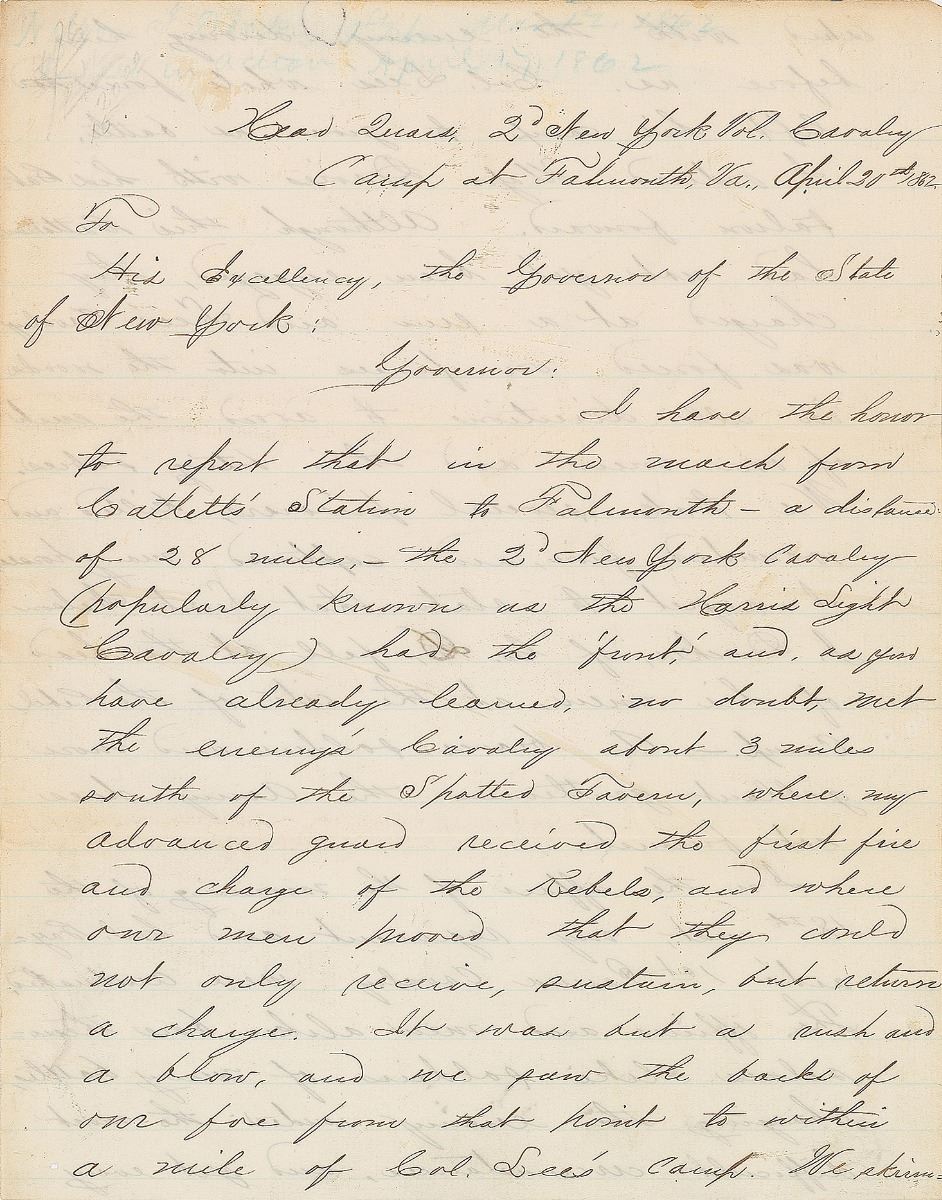 April 17, 1862
Head Quars, 2d New York Vol. Cavalry
Camp at Falmouth, Va., April 20th 1862.
To
His Excellency, the Governor of the State
of New York:
Governor:
I have the honor
to report that in the march from
Catlett's Station to Falmouth - a distance
of 28 miles, - the 2d New York Cavalry
(popularly known as the Harris Light
Cavalry) had the 'front,' and, as you
have already learned, no doubt, met
the enemy's Cavalry about 3 miles
south of the Spotted Tavern, where my
advanced guard received the first fire
and charge of the Rebels, and where
our men proved that they could
not only receive, sustain, but return
a charge. It was but a rush and
a blow, and we saw the backs of
our foe from that point to within
a mile of Col. Lee's camp. We skirm-